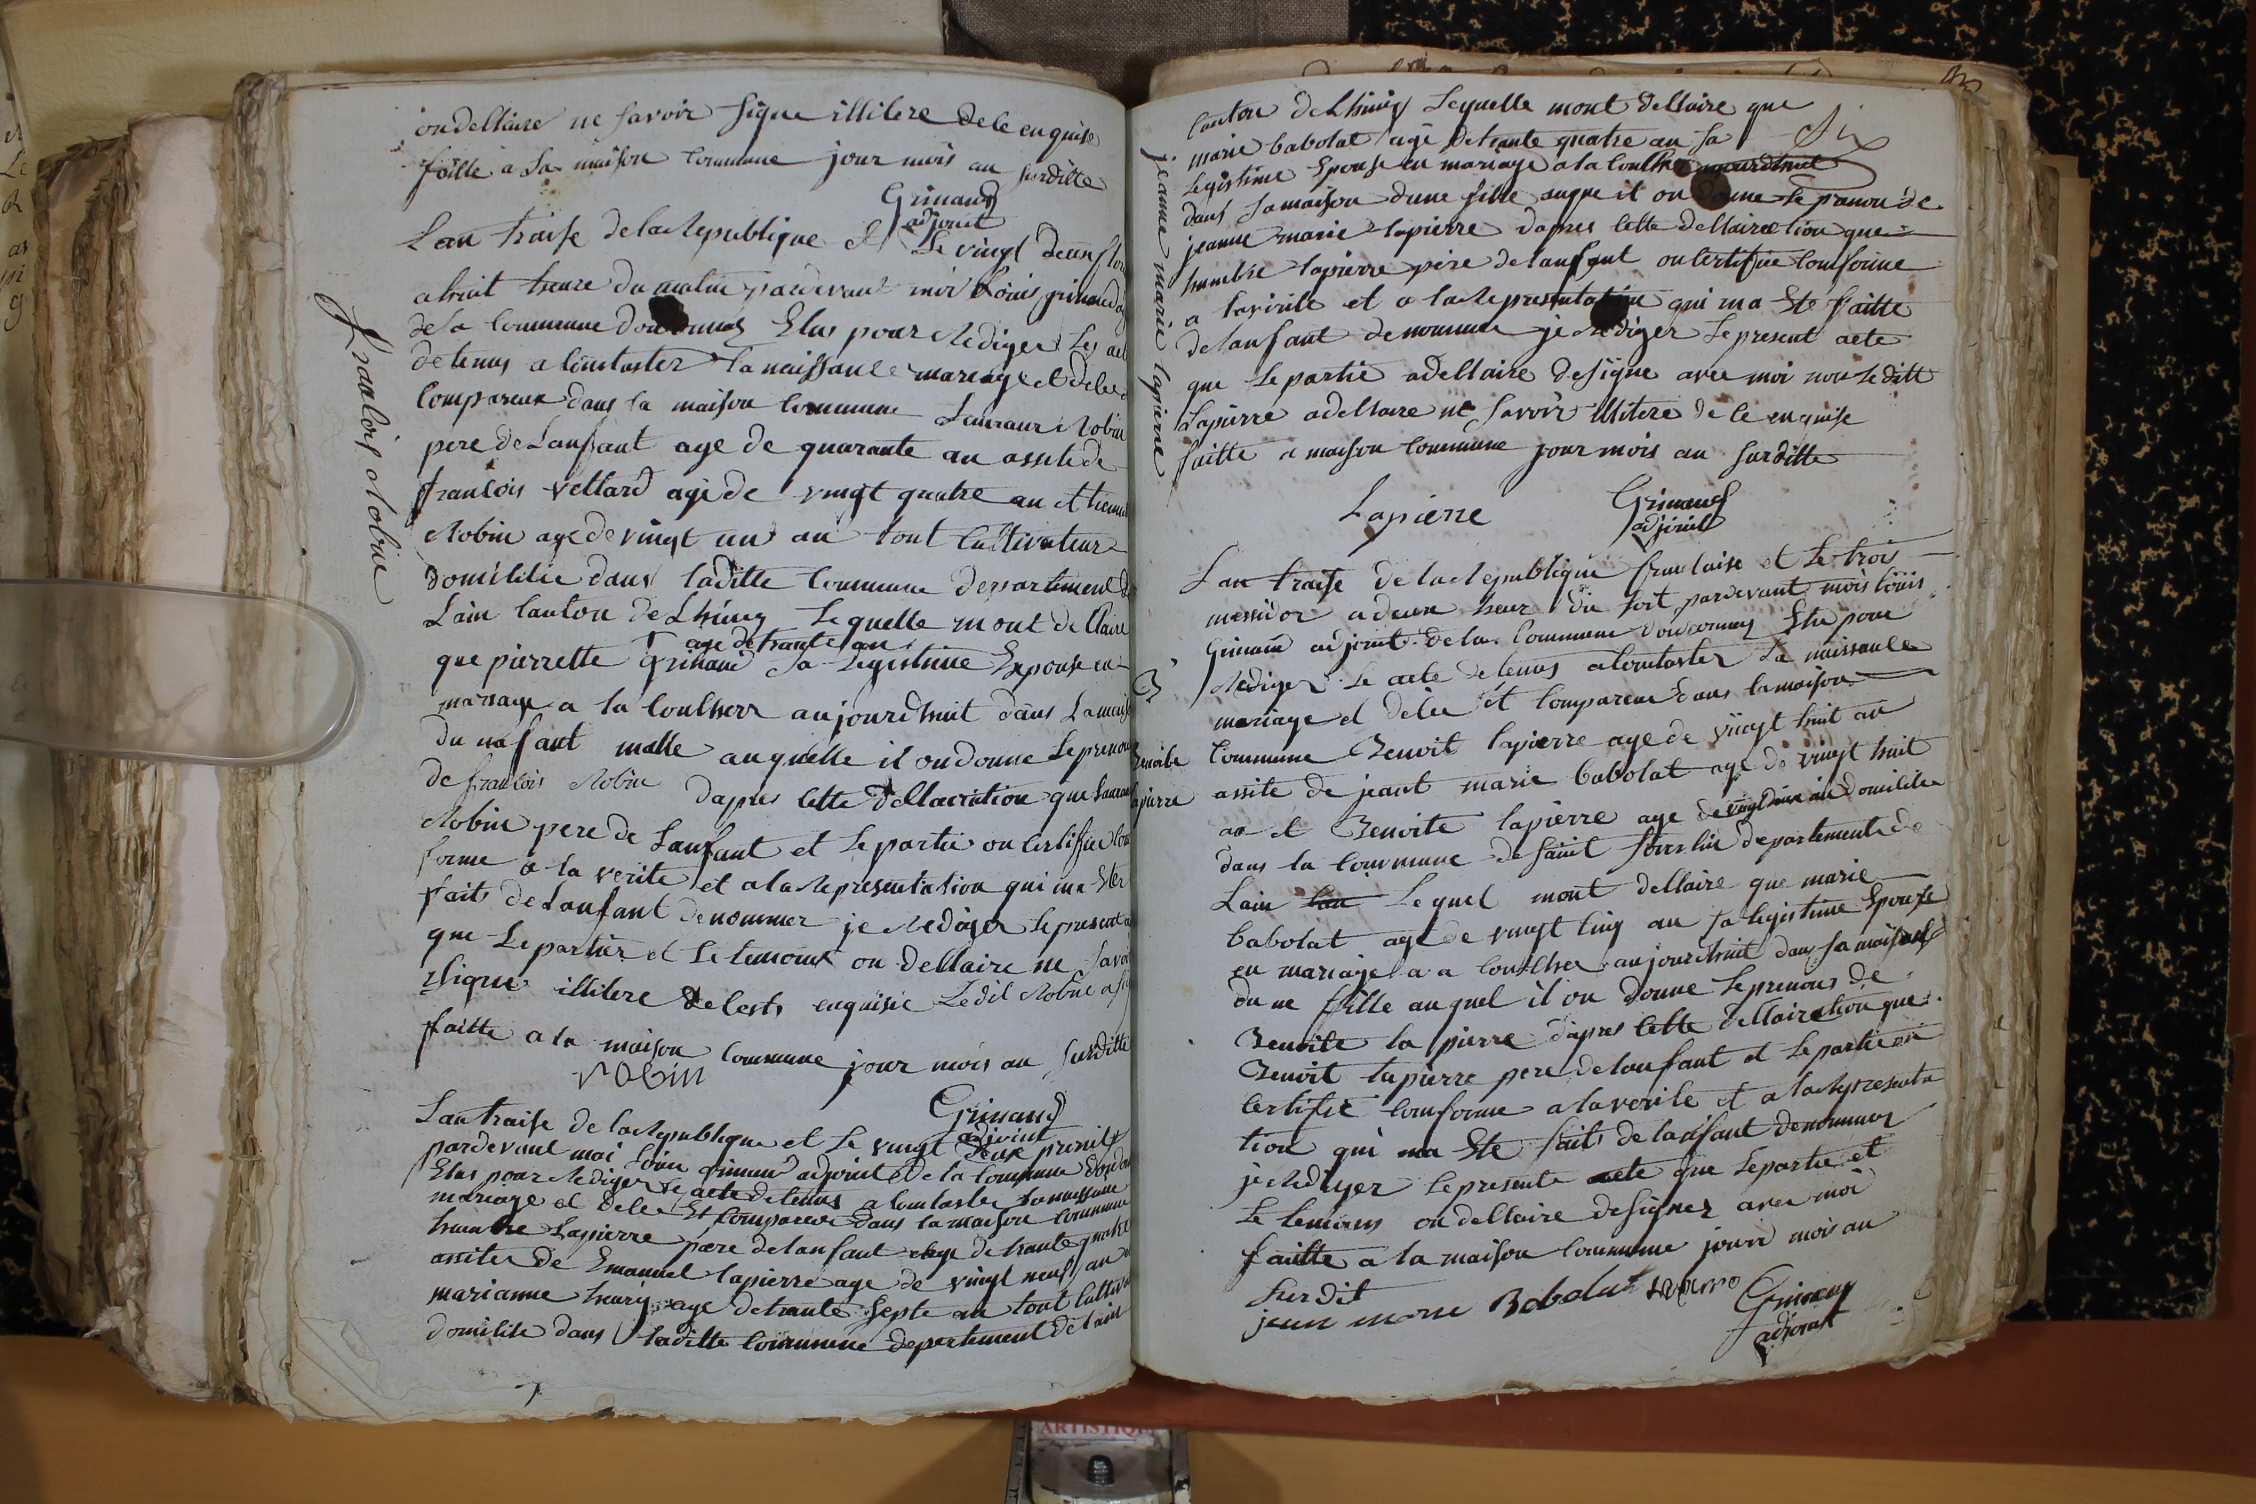 on dellaire ne savoir signe illitere de le enquise
faitte a la maison commune jour mois an surditte
Grimand
adjoint
L'an traise de la Republique et Le vingt deux
a huit heure du matin pardevant moi Louis grimand
de la Commune Elus pour Rediger Les
detenus a lontaster la naissance mariage et dele
Compareux dans la maison Commune Laurant Robin
pere de Lanfant age de quarante an assite de
francois vettard age de vingt quatre an et
Robin age de vingt un an tout Cultivateur
domicilie dans laditte Commune departement
Lain Canton de Lhuis Lequelle mont dellaire
age de trante an
que pierrette Grimand sa Legistime Epouse en
mariage a la coulher aujourdhuit dans La
du nafant malle auquelle il on donne Le prenom
de francois Robin dapres cette dellaration que Lauran
Robin pere de Lanfant et Le partie on certifie con
forme a la verite et a la Representation qui ma Ete
faits de Lanfant denommer je Rediger Le present
que Le partier et Le temoins on dellaire ne savoi
signe illitere de lests enquisie Ledit Robin a
faitte a la maison Commune jour mois an Surditte
robin
Grimand
adjoint
francois Robine
Lan traise de la Republique et Le vingt deux
pardevant moi Louis grimand adjoint de la Commune
Elus pour Rediger Le acte detenus a lontaster la naissance
mariage et dele Et Compareux dans la maison Commune
humbre Lapierre pere de lanfant age de trante quatre
assiter de Emanuel lapierre age de vingt neuf an
marianne hurg age de trante septe an tout
domilite dans laditte Commune departement de lain
Canton de Lhuis Lequelle mont dellaire que
marie babolat age de trante quatre an sa
Legistime Epouse en mariage a la aujourdhuit
dans sa maison dune fille auque il on donne Le prenom de
jeanne marie lapierre dapres cette dellairection que
humbre lapierre pere de lanfant on certifie conforme
a lavirite et a la Representation qui ma Ete faitte
de lanfant denommer je Rediger Le present acte
que Le partie a dellaire de signe avec moi non Leditt
Lapierre a dellaire ne savoir illitere de le enquise
faitte a maison Commune jour mois an surditte
Lapierre
Grimand
adjoint
jeanne marie lapierre
Lan traise de la Republique francaise et Le trois
messidor a deux heur du soit pardevant mois Louis
Grimand adjoint de la Commune Elu pour
Rediger Le acte detenus a lontaster La naissance
mariage et dele et Compareux dans la maison
Commune Benoit lapierre age de vingt huit an
assite de jeant marie babolat age de vingt huit
an et Benoite lapierre age de vingt deux an domicilie
dans la Commune de saint departement de
Lain Lequel mont dellaire que marie
babolat age de vingt cinq an sa legistime Epouse
en mariage a a coulher aujourdhuit dans sa maison
du ne fille auquel il on donne Le prenons de
Benoite la pierre dapres cette dellairetion que
Benoit lapierre pere de lanfant et Le partie on
certifie conforme a la verite et a la Representa
tion qui ma Ete faits de lanfant denommer
je Rediger Le presente acte que Le partie et
Le temoins on dellaire de signez avec moi
faitte a la maison Commune jour mois an
Surdit
jean marie Babolat
Grimand
adjoint
Benoite
lapierre